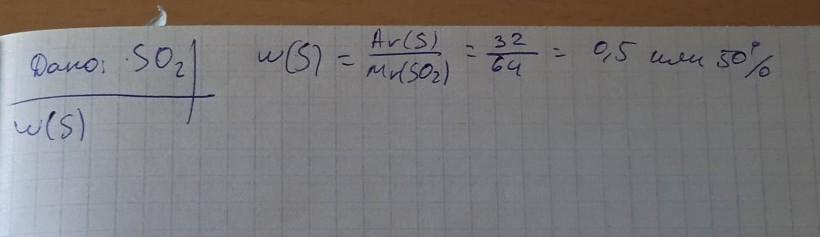 Дано: SO2 w(S) = Ar(S)/Mr(SO2) = 32/64 = 0,5 или 50%
w(S)